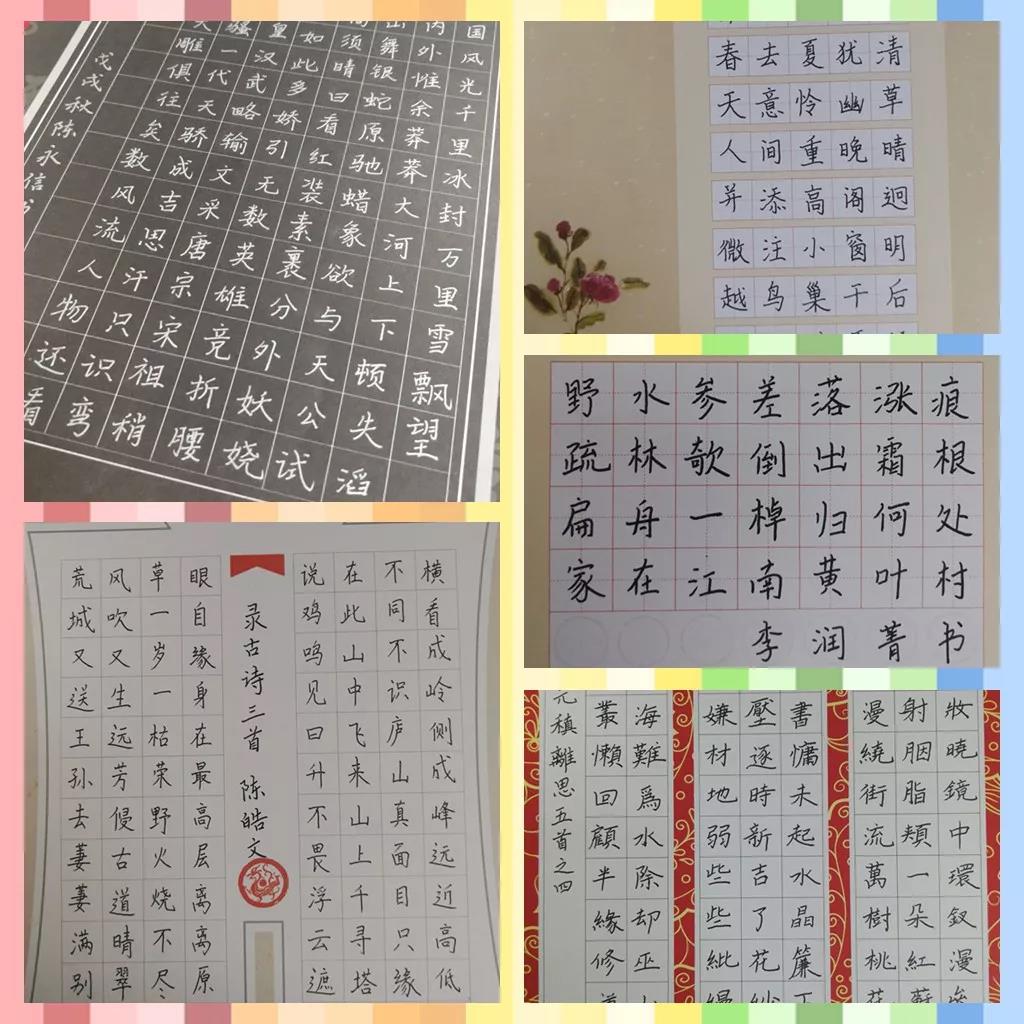 国风光千里冰封万里雪飘望
内外惟余莽莽大河上下顿失滔
山舞银蛇原驰蜡象欲与天公试
须晴日看红装素裹分外妖娆
如此多娇引无数英雄竞折腰
皇汉武略输文采唐宗宋祖稍
骚一代天骄成吉思汗只识弯
雕俱往矣数风流人物还看
戊戌秋陈永信书
春去夏犹清
天意怜幽草
人间重晚晴
并添高阁迥
微注小窗明
越鸟巢干后
野水参差落涨痕
疏林欹倒出霜根
扁舟一棹归何处
家在江南黄叶村
李润菁书
横看成岭侧成峰远近高低
不同不识庐山真面目只缘
在此山中飞来山上千寻塔
说鸡鸣见日升不畏浮云遮
录古诗三首 陈皓文
眼自缘身在最高层离离原
草一岁一枯荣野火烧不尽
风吹又生远芳侵古道晴翠
荒城又送王孙去萋萋满别
妝暁鏡中環釵漫
射胭脂頬一朵紅蘇
漫繞街流萬樹桃花
書慵未起水晶簾下
壓逐時新吉了花紗
嫌材地弱些些紕縵
海難爲水除却巫山
叢懶回顧半緣修道
元稹離思五首之四